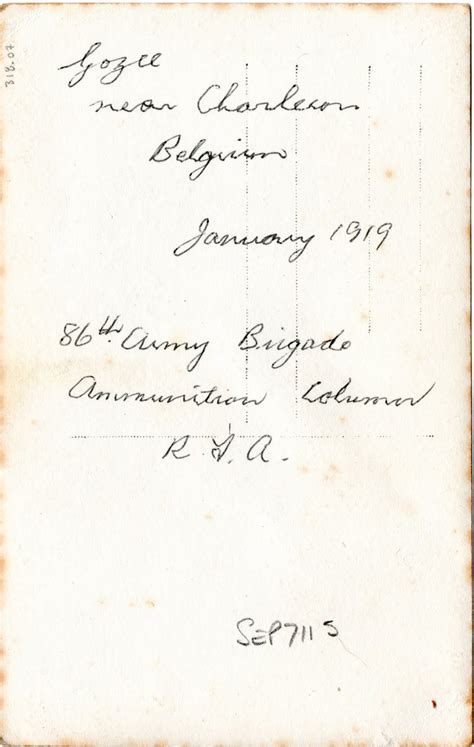 318.07
Gozee
near Charleroi
Belgium
January 1919
86th Army Brigade
Ammunition Column
R. F. A.
SEP711S